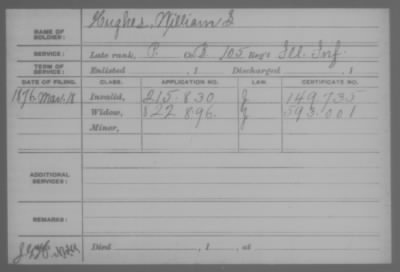 NAME OF SOLDIER: Hughes, William S.
SERVICE: Late rank, P. Co. B, 105 Reg't Ill. Inf.
TERM OF SERVICE: Enlisted , 1 Discharged , 1
DATE OF FILING. CLASS. APPLICATION NO. LAW. CERTIFICATE NO.
1876 Mar. 18 Invalid, 215.830 149.735
Widow, 822.896. 593.001
Minor,
ADDITIONAL SERVICES:
REMARKS:
Died , 1 , at